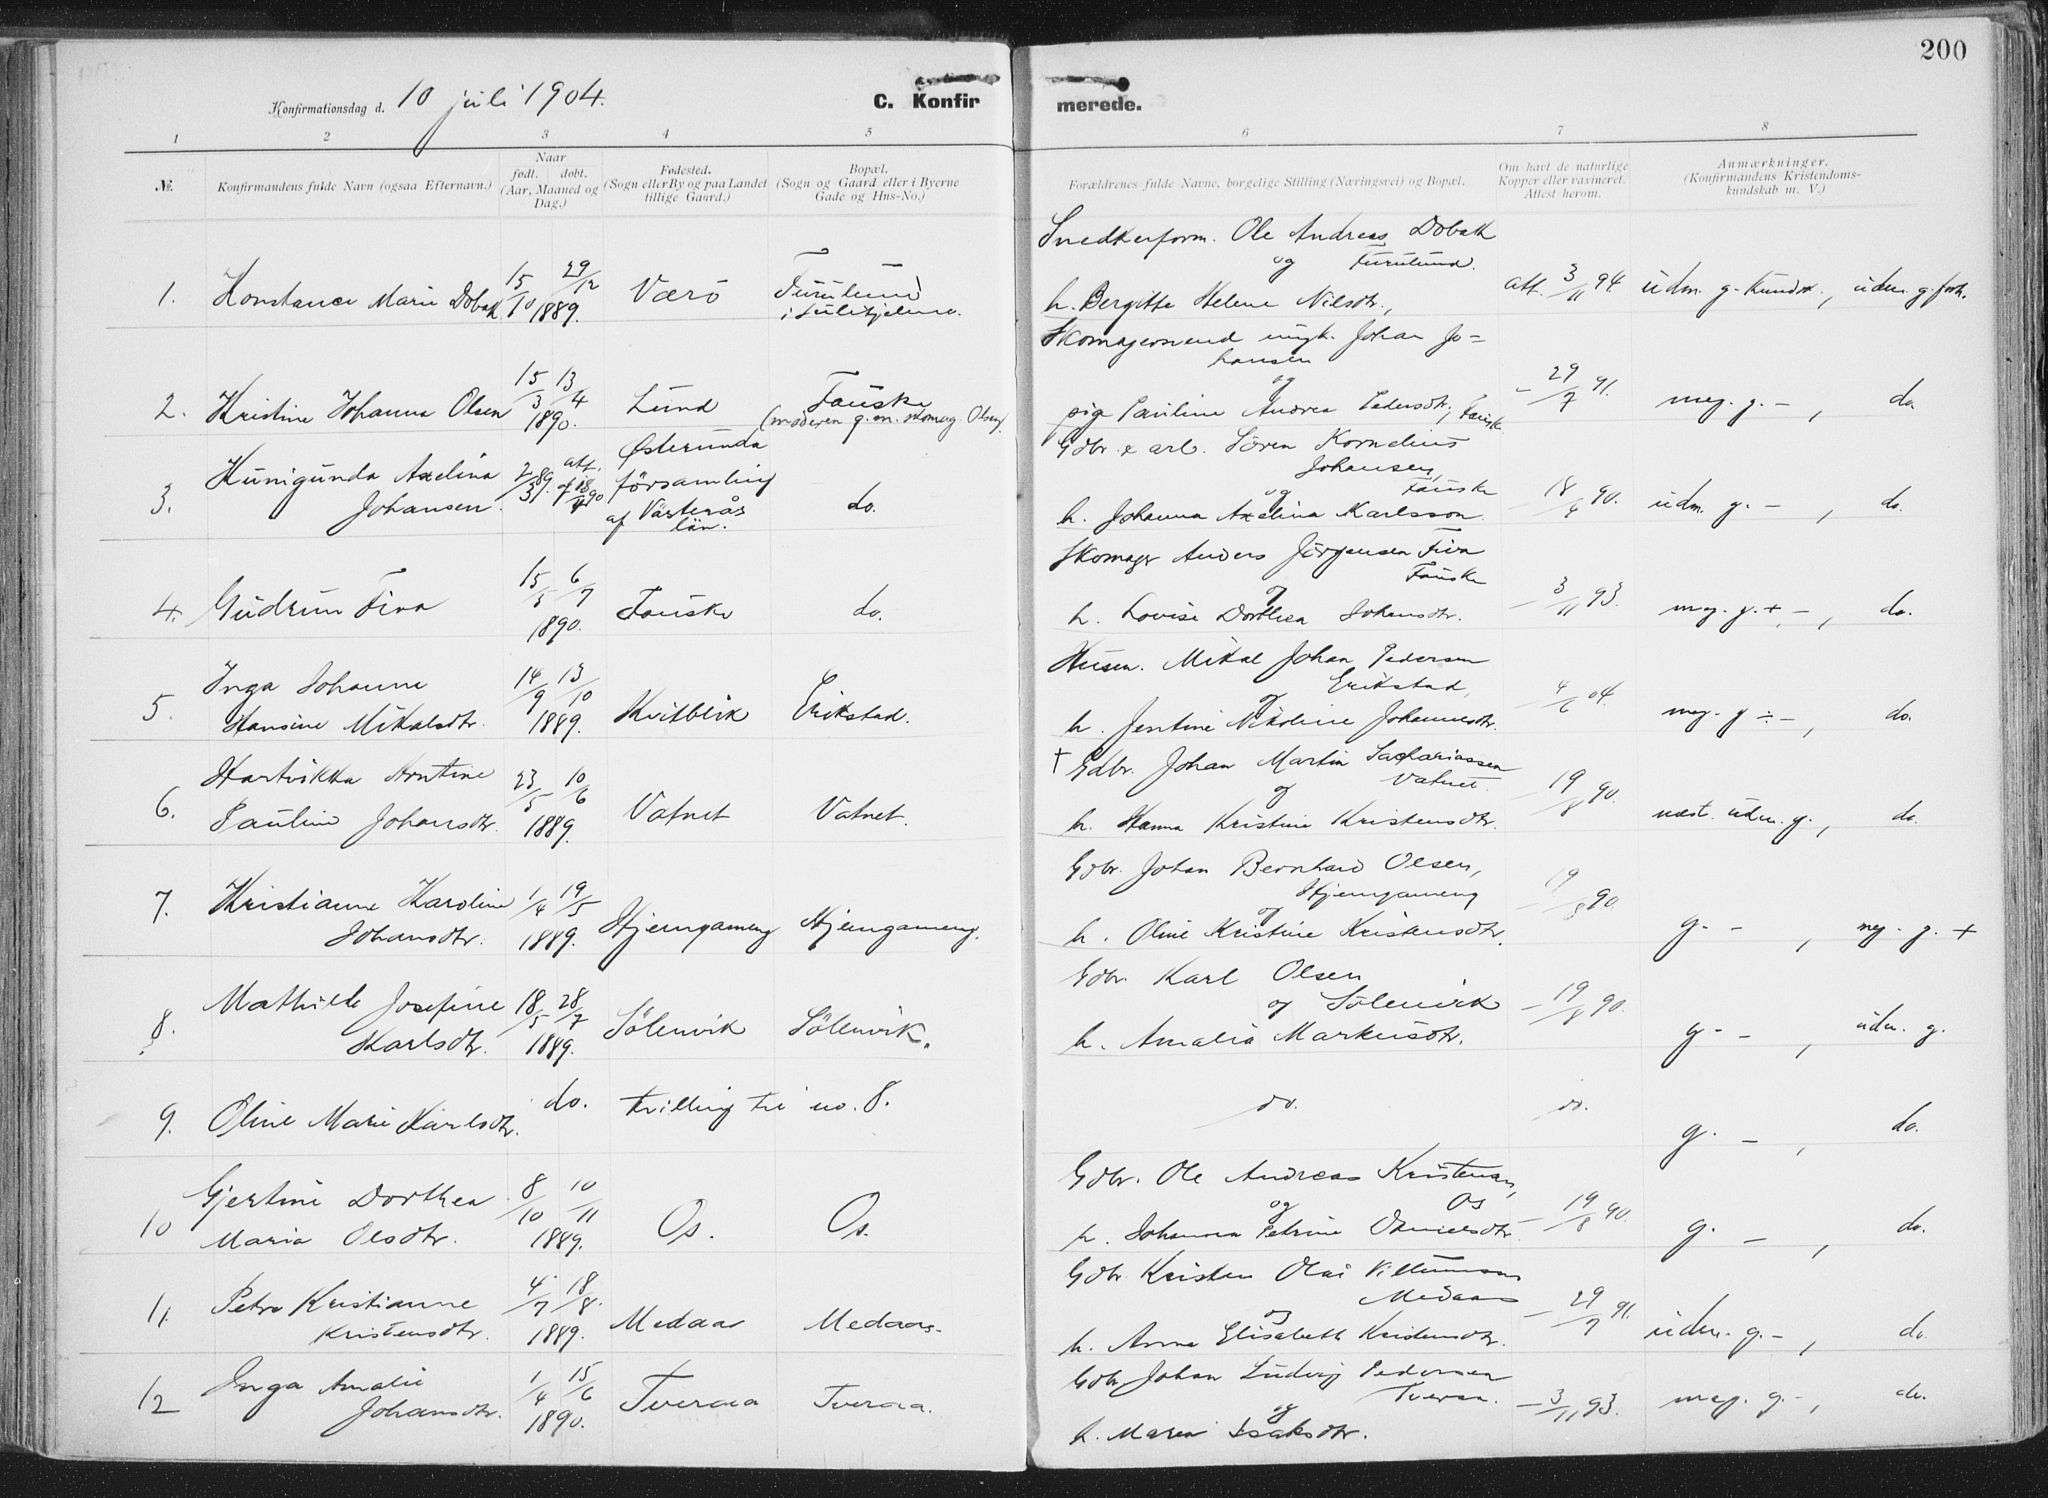 200
Konfirmationsdag d. 10 juli 1904.
C. Konfirmerede.
1 2 3 4 5 6 7 8
№.
Konfirmandens fulde Navn (ogsaa Efternavn.)
Naar
født. døbt.
(Aar, Maaned og Dag.)
Fødested.
(Sogn eller By og paa Landet
tillige Gaard.)
Bopæl.
(Sogn og Gaard eller i Byerne
Gade og Hus-No.)
Forældrenes fulde Navne, borgelige Stilling (Næringsvei) og Bopæl.
Om havt de naturlige
Kopper eller vaxineret.
Attest herom.
Anmærkninger.
(Konfirmandens Kristendoms-
kundskab m. V.)
Snedkerform. Ole Andreas Dobak
og Furulund.
1. Konstance Marie Dobak 15/10 29/12 1889. Værö Furulund
i Sulitjelma.
h. Bergitte Helene Nilsdtr., att. 3/11 94. udm. g. kundsk., udm. g. forh.
Skomagersvend ungk. Johan Jo=
hansen
og
2. Kristine Johanna Olsen 15/3 13/4 1890. Lund Fauske
(moderen g. m. skomag. Olsen)
pige Pauline Andrea Pedersdtr., Fauske – 29/7 91. meg. g. – , do.
Gdbr. & arb. Sören Kornelius
Johansen,
og Fauske
3. Kunigunda Axelina
Johansen. 2/3 89. att. af 18/4 90 Østerunda
församling
af Västerås
län. do.
h. Johanna Axelina Karlsson. – 18/4 90. udm. g. – , do.
Skomager Anders Jörgensen Fiva
Fauske
og
4. Gudrun Fiva 15/5 6/7 1890. Fauske do.
h. Lovise Dorthea Johansdtr. – 3/11 93. meg. g. + – , do.
Husm. Mikal Johan Pedersen
Erikstad,
og
5. Inga Johanne
Hansine Mikalsdtr. 14/9 13/10 1889. Kvitblik Erikstad.
h. Jentine Nikoline Johannesdtr. – 4/6 04. meg. g ÷ – , do.
† Gdbr. Johan Martin Sachariassen
Vatnet.
og
6. Hartvikka Arntine
Pauline Johansdtr. 23/5 10/6 1889. Vatnet Vatnet.
h. Hanna Kristine Kristensdtr. – 19/8 90. næst. udm. g. , do.
Gdbr. Johan Bernhard Olsen,
Hjemgameng
og
7. Kristianne Karoline
Johansdtr. 1/4 19/5 1889. Hjemgameng Hjemgameng.
h. Oline Kristine Kristensdtr. – 19/8 90. g. – , meg. g. +
Gdbr. Karl Olsen
og Sölenvik
8. Mathilde Josefine
Karlsdtr. 18/5 28/7 1889. Sölenvik Sölenvik.
h. Amalia Markusdtr. – 19/8 90. g. – , udm. g.
9. Oline Marie Karlsdtr. do. tvilling til no. 8. do. do. g. – , do.
Gdbr. Ole Andreas Kristensen,
og Os
10 Gjertine Dorthea
Maria Olsdtr. 8/10 10/11 1889. Os. Os.
h. Johanna Petrine Danielsdtr. – 19/8 90. g. – , do.
Gdbr. Kristen Olai Villumsen
Medaas
og
11. Petra Kristianne
Kristensdtr. 4/7 18/8. 1889. Medaas Medaas.
h. Anna Elisabeth Kristensdtr. – 29/7 91. udm. g. – , do.
Gdbr. Johan Ludvig Pedersen
Tveraa.
og
12 Inga Amalie
Johansdtr. 1/4 15/6 1890. Tveraa Tveraa.
h. Maren Isaksdtr. – 3/11 93. meg. g. – , do.